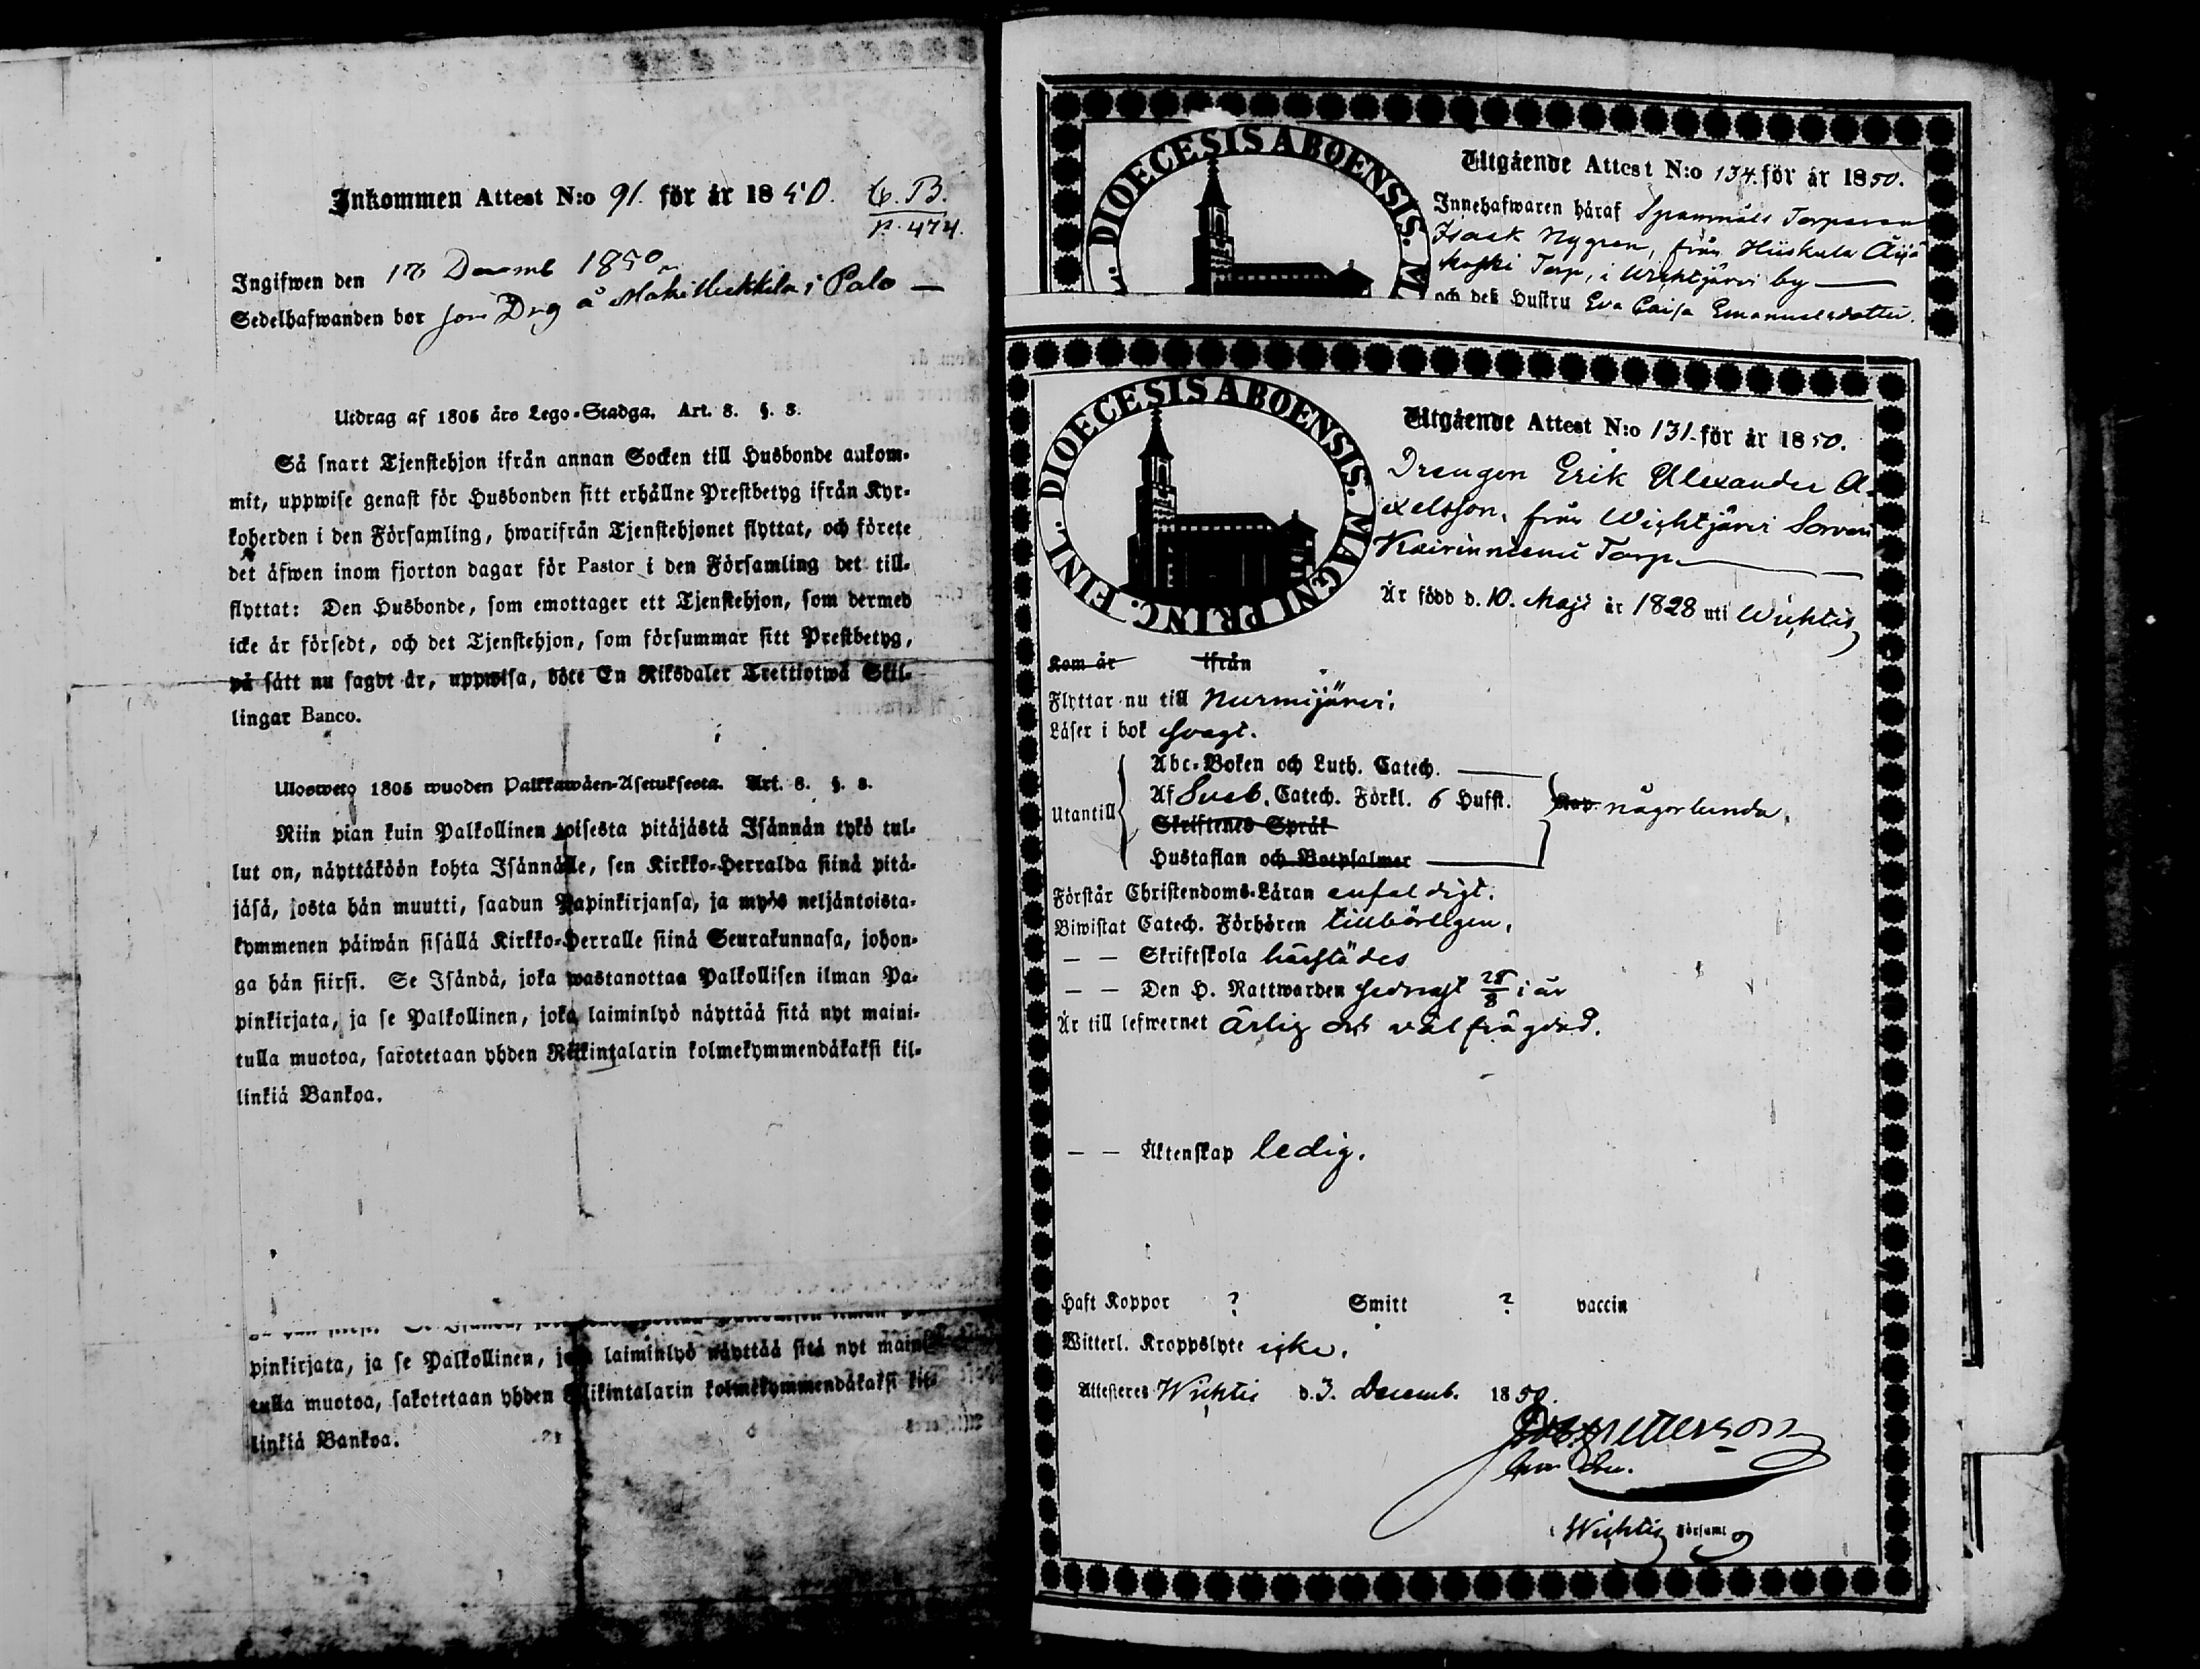 Inkommen Attest N:o 91. för år 1850. C. B.
p. 474.
Ingifwen den 18 Decemb 1850
Sedelhafwanden bor som Drg å Mäki Uckkila i Palo —
Utdrag af 1805 års Lego-Stadga. Art. 8. §. 8.
Så snart Tjenstehjon ifrån annan Socken till Husbonde ankom-
mit, uppwise genast för Husbonden sitt erhållne Prestbetyg ifrån Kyr-
koherden i den Församling, hwarifrån Tjenstehjonet flyttat, och förete
det äfwen inom fjorton dagar för Pastor i den Församling det till-
flyttat: Den Husbonde, som emottager ett Tjenstehjon, som dermed
icke är försedt, och det Tjenstehjon, som försummar sitt Prestbetyg,
på sätt nu sagdt är, uppwisa, böte En Riksdaler Trettiotwå Skil-
lingar Banco.
Ulosweto 1805 wuoden Palkkawäen-Asetuksesta. Art. 8. §. 8.
Niin pian kuin Palkollinen toisesta pitäjästä Isännän tykö tul-
lut on, näyttäköön kohta Isännälle, sen Kirkko-Herralda siinä pitä-
jäsä, josta hän muutti, saadun Papinkirjansa, ja myös neljäntoista-
kymmenen päiwän sisällä Kirkko-Herralle siinä Seurakunnasa, johon-
ga hän siirsi. Se Isändä, joka wastanottaa Palkollisen ilman Pa-
pinkirjata, ja se Palkollinen, joka laiminlyö näyttää sitä nyt maini-
tulla muotoa, sakotetaan yhden Riikintalarin kolmekymmendäkaksi kil-
linkiä Bankoa.
pinkirjata, ja se Palkollinen, joka laiminlyö näyttää sitä nyt maini-
tulla muotoa, sakotetaan yhden Riikintalarin kolmekymmendäkaksi kil-
linkiä Bankoa.
DIOECESIS ABOENSIS. M
Utgående Attest N:o 134. för år 1850.
Innehafwaren häraf Spanmåls Torparen
Isaak Nygren, från Hiiskula Äijä
koski Torp, i Wichtjärvi by —
och des Hustru Eva Caisa Emanuelsdotter.
DIOECESIS ABOENSIS. MAGNI PRINC. FINL.
Utgående Attest N:o 131. för år 1850.
Drengen Erik Alexander A-
xelsson, från Wichtjärvi Sorvari
Kairinniemi Torp. —
Är född d. 10. Maji år 1828 uti Wichtis
Kom år ifrån
Flyttar nu till Nurmijärvi.
Läser i bok svagt.
Utantill
Abc-Boken och Luth. Catech.
Af Sveb. Catech. Förkl. 6 Hufst.
Skriftenes Språk
Hustaflan och Botpsalmer
någorlunda.
Förstår Christendoms-Läran enfaldigt.
Biwistat Catech. Förhören tillbörligen.
— — Skriftskola härstädes
— — Den H. Nattwarden sednast 25/8 i år
Är till lefwernet ärlig och välfrägdad.
— — Äktenskap ledig.
Haft Koppor ? Smitt ? vaccin
Witterl. Kroppslyte icke.
Attesteres Wichtis d. 3. Decemb. 1850.
i Wichtis Församl